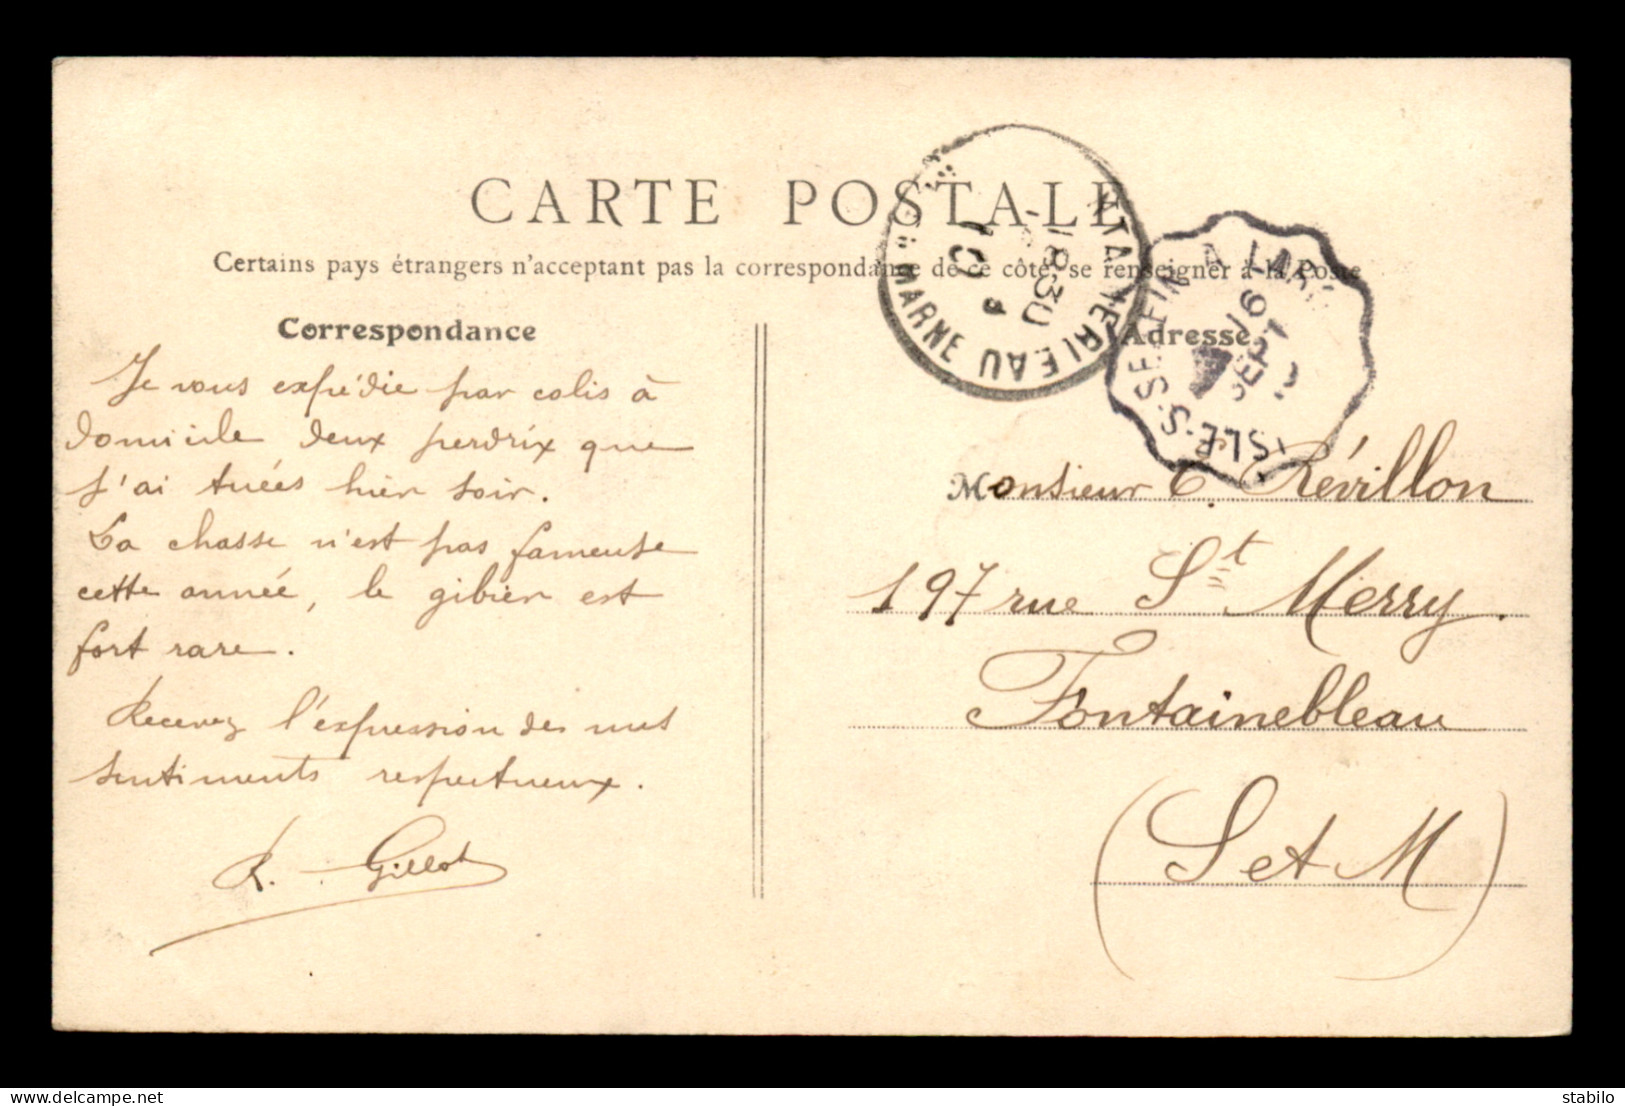 CARTE POSTALE
Certains pays étrangers n'acceptent pas la correspondance de ce côté, se renseigner à la Poste
Correspondance
Je vous expédie par colis à
domicile deux perdrix que
j'ai tuées hier soir.
La chasse n'est pas fameuse
cette année, le gibier est
fort rare.
Recevez l'expression des mes
sentiments respectueux.
R. Gillot
Adresse
Monsieur C. Révillon
197 rue St Merry.
Fontainebleau
(S et M)
18 30
MARNE
ISLE-S-SEREIN A
SEPT
delcampe.net
stabilo